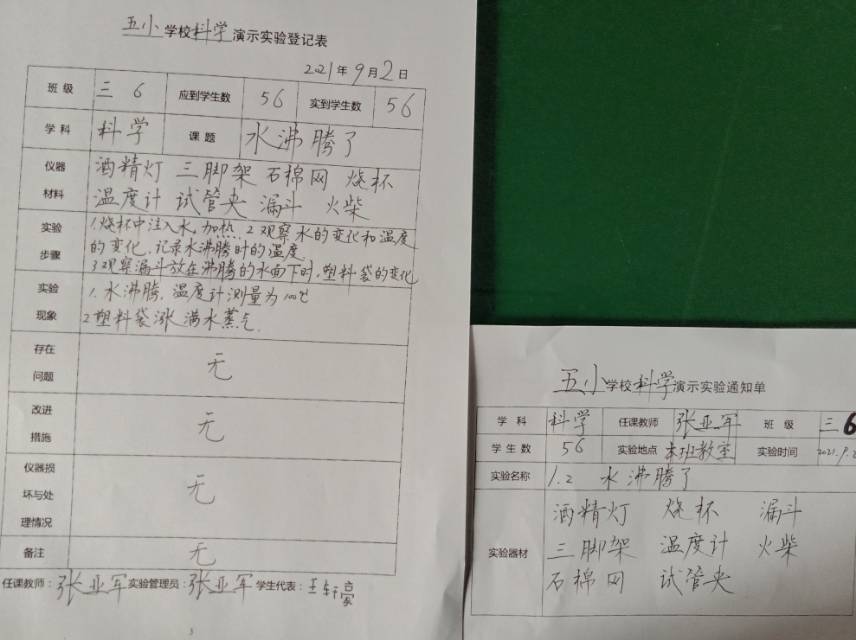 五小学校科学演示实验登记表
2021年9月2日
班级 三 6 应到学生数 56 实到学生数 56
学科 科学 课题 水沸腾了
仪器材料 酒精灯 三脚架 石棉网 烧杯
温度计 试管夹 漏斗 火柴
实验步骤 1.烧杯中注入水,加热.2观察水的变化和温度
的变化,记录水沸腾时的温度.
3观察漏斗放在沸腾的水面下时,塑料袋的变化
实验现象 1.水沸腾,温度计测量为100℃
2塑料袋涨满水蒸气.
存在问题 无
改进措施 无
仪器损坏与处理情况 无
备注 无
任课教师:张亚军 实验管理员:张亚军 学生代表:王轩豪
五小学校科学演示实验通知单
学科 科学 任课教师 张亚军 班级 三6
学生数 56 实验地点 本班教室 实验时间 2021.9.2
实验名称 1.2 水沸腾了
实验器材 酒精灯 烧杯 漏斗
三脚架 温度计 火柴
石棉网 试管夹